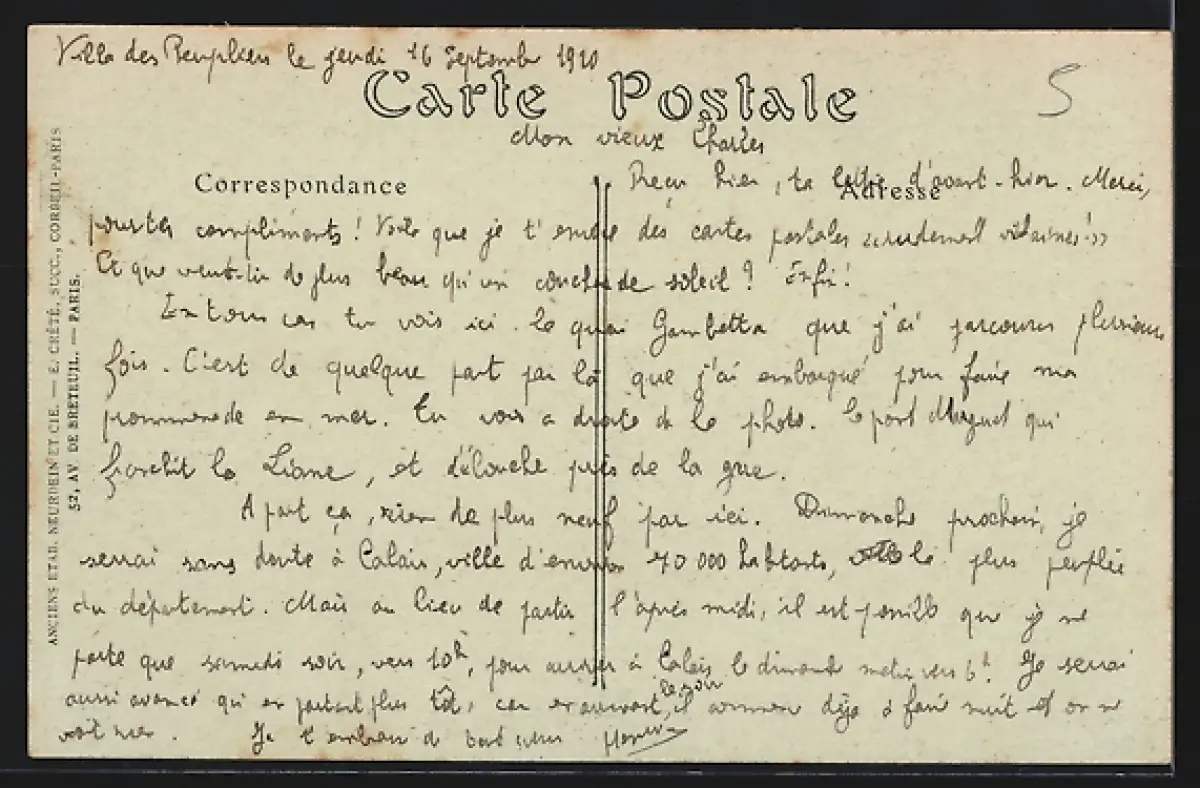 Ville des Peupliers le jeudi 16 Septembre 1920
Carte Postale
5
Mon vieux Charles
Correspondance
Adresse
Reçu hier, ta lettre d'avant-hier. Merci,
pour tes compliments ! Voila que je t'envoie des cartes postales vilaines !»
Ce que veux-tu de plus beau qu'un couché de soleil ? Enfin !
En tous cas tu vois ici le quai Gambetta que j'ai parcouru plusieurs
fois. C'est de quelque part par là que j'ai embarqué pour faire ma
prommenade en mer. Tu vois a droite de la photo. le pont Marguet qui
franchit la Liane, et débouche près de la grue.
A part ça, rien de plus neuf par ici. Dimanche prochain, je
serrai sans doute à Calais, ville d'environ 70 000 habitants, la plus peuplée
du département. Mais au lieu de partir l'après midi, il est possible que je ne
parte que samedi soir, vers 10h, pour arriver à Calais le dimanche matin vers 6h. Je serrai
aussi avancé qu'en partant plus tôt, car en arrivant, le soir il commence déja à faire nuit et on ne
voit rien. Je t'embrasse de tout cœur
ANCIENS ETAB. NEURDEIN ET CIE. — E. CRÉTÉ, SUCC., CORBEIL-PARIS
52, AV. DE BRETEUIL. — PARIS.